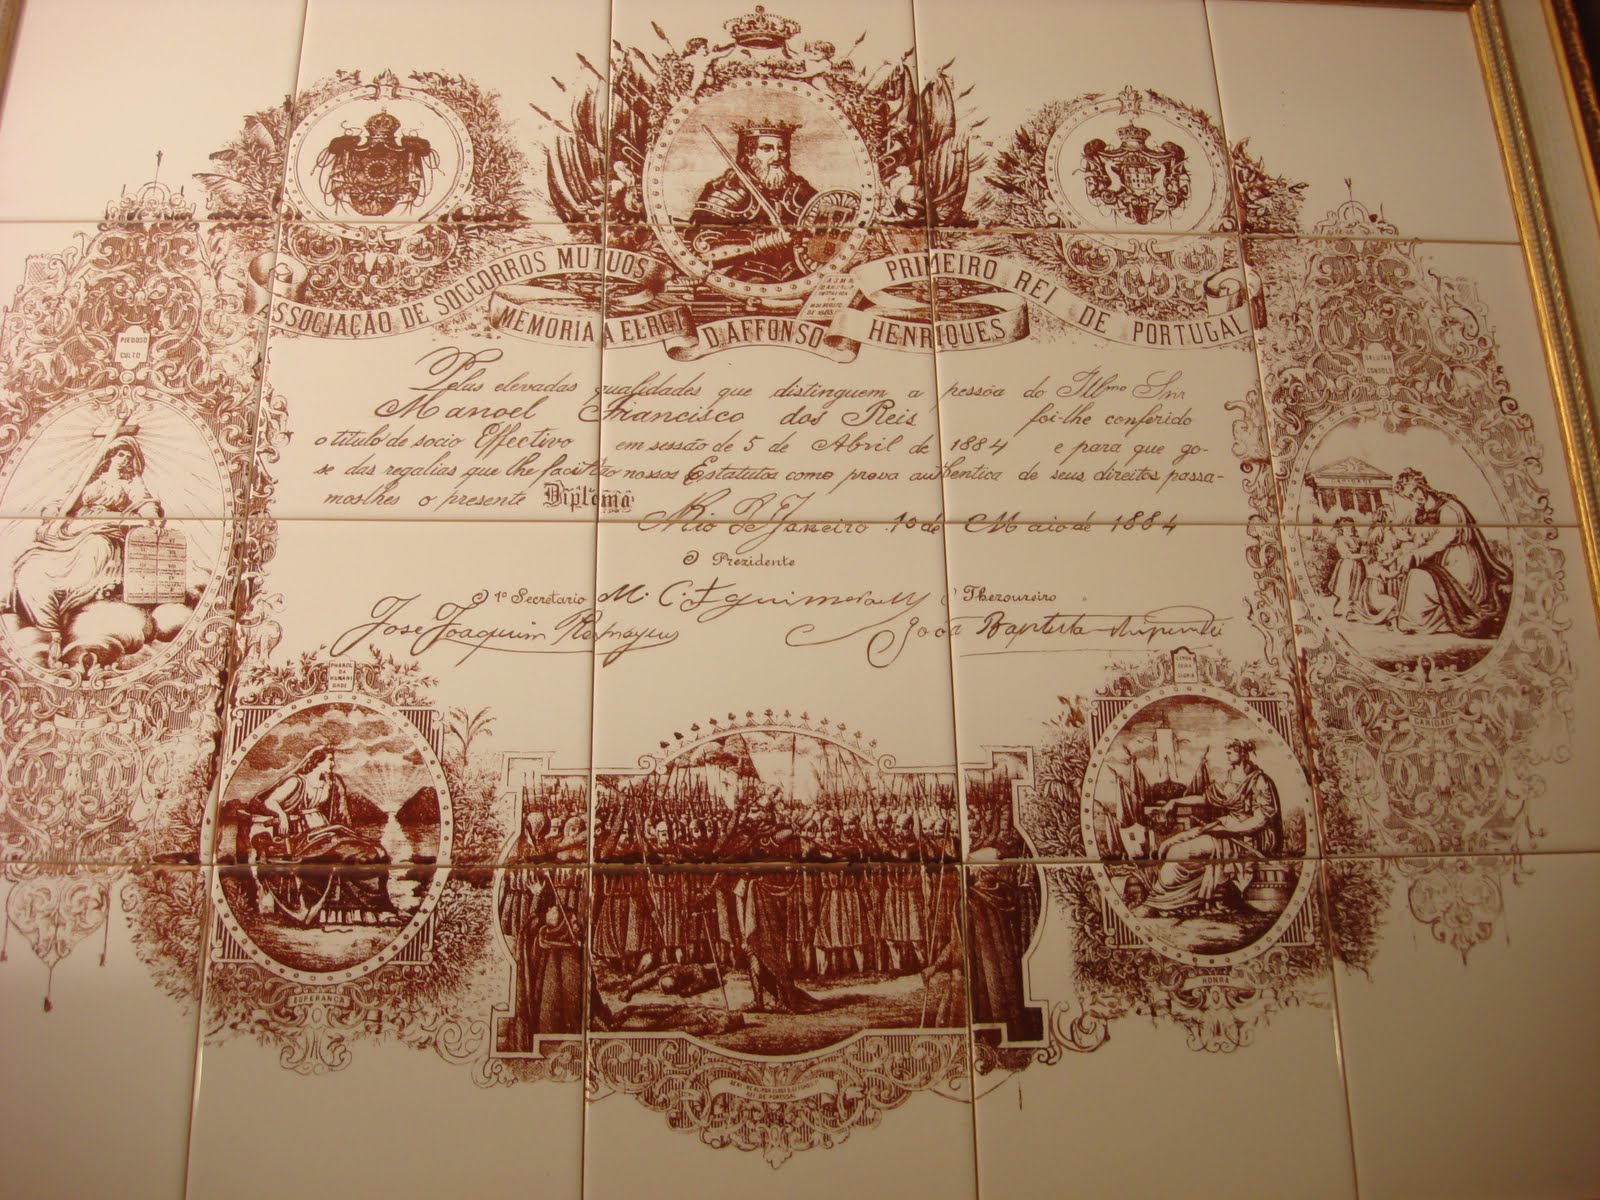 ASSOCIAÇÃO DE SOCCORROS MUTUOS
MEMORIA A ELREI D. AFFONSO HENRIQUES
PRIMEIRO REI DE PORTUGAL
PIEDOSO
CULTO
SALUTAR
CONSOLO
Pelas elevadas qualidades que distinguem a pessôa do Illmo Snr
Manoel Francisco dos Reis foi-lhe conferido
o titulo de socio Effectivo em sessão de 5 de Abril de 1884 e para que go-
se das regalias que lhe facultão nossos Estatutos como prova authentica de seus direitos passa-
mos lhes o presente Diploma
Rio de Janeiro 10 de Maio de 1884
O Prezidente
O 1º Secretario
O Thezoureiro
José Joaquim
João Baptista
CARIDADE
PHAROL
DA
HUMANI
DADE
FÉ
CARIDADE
ESPERANÇA
HONRA
REI DE PORTUGAL